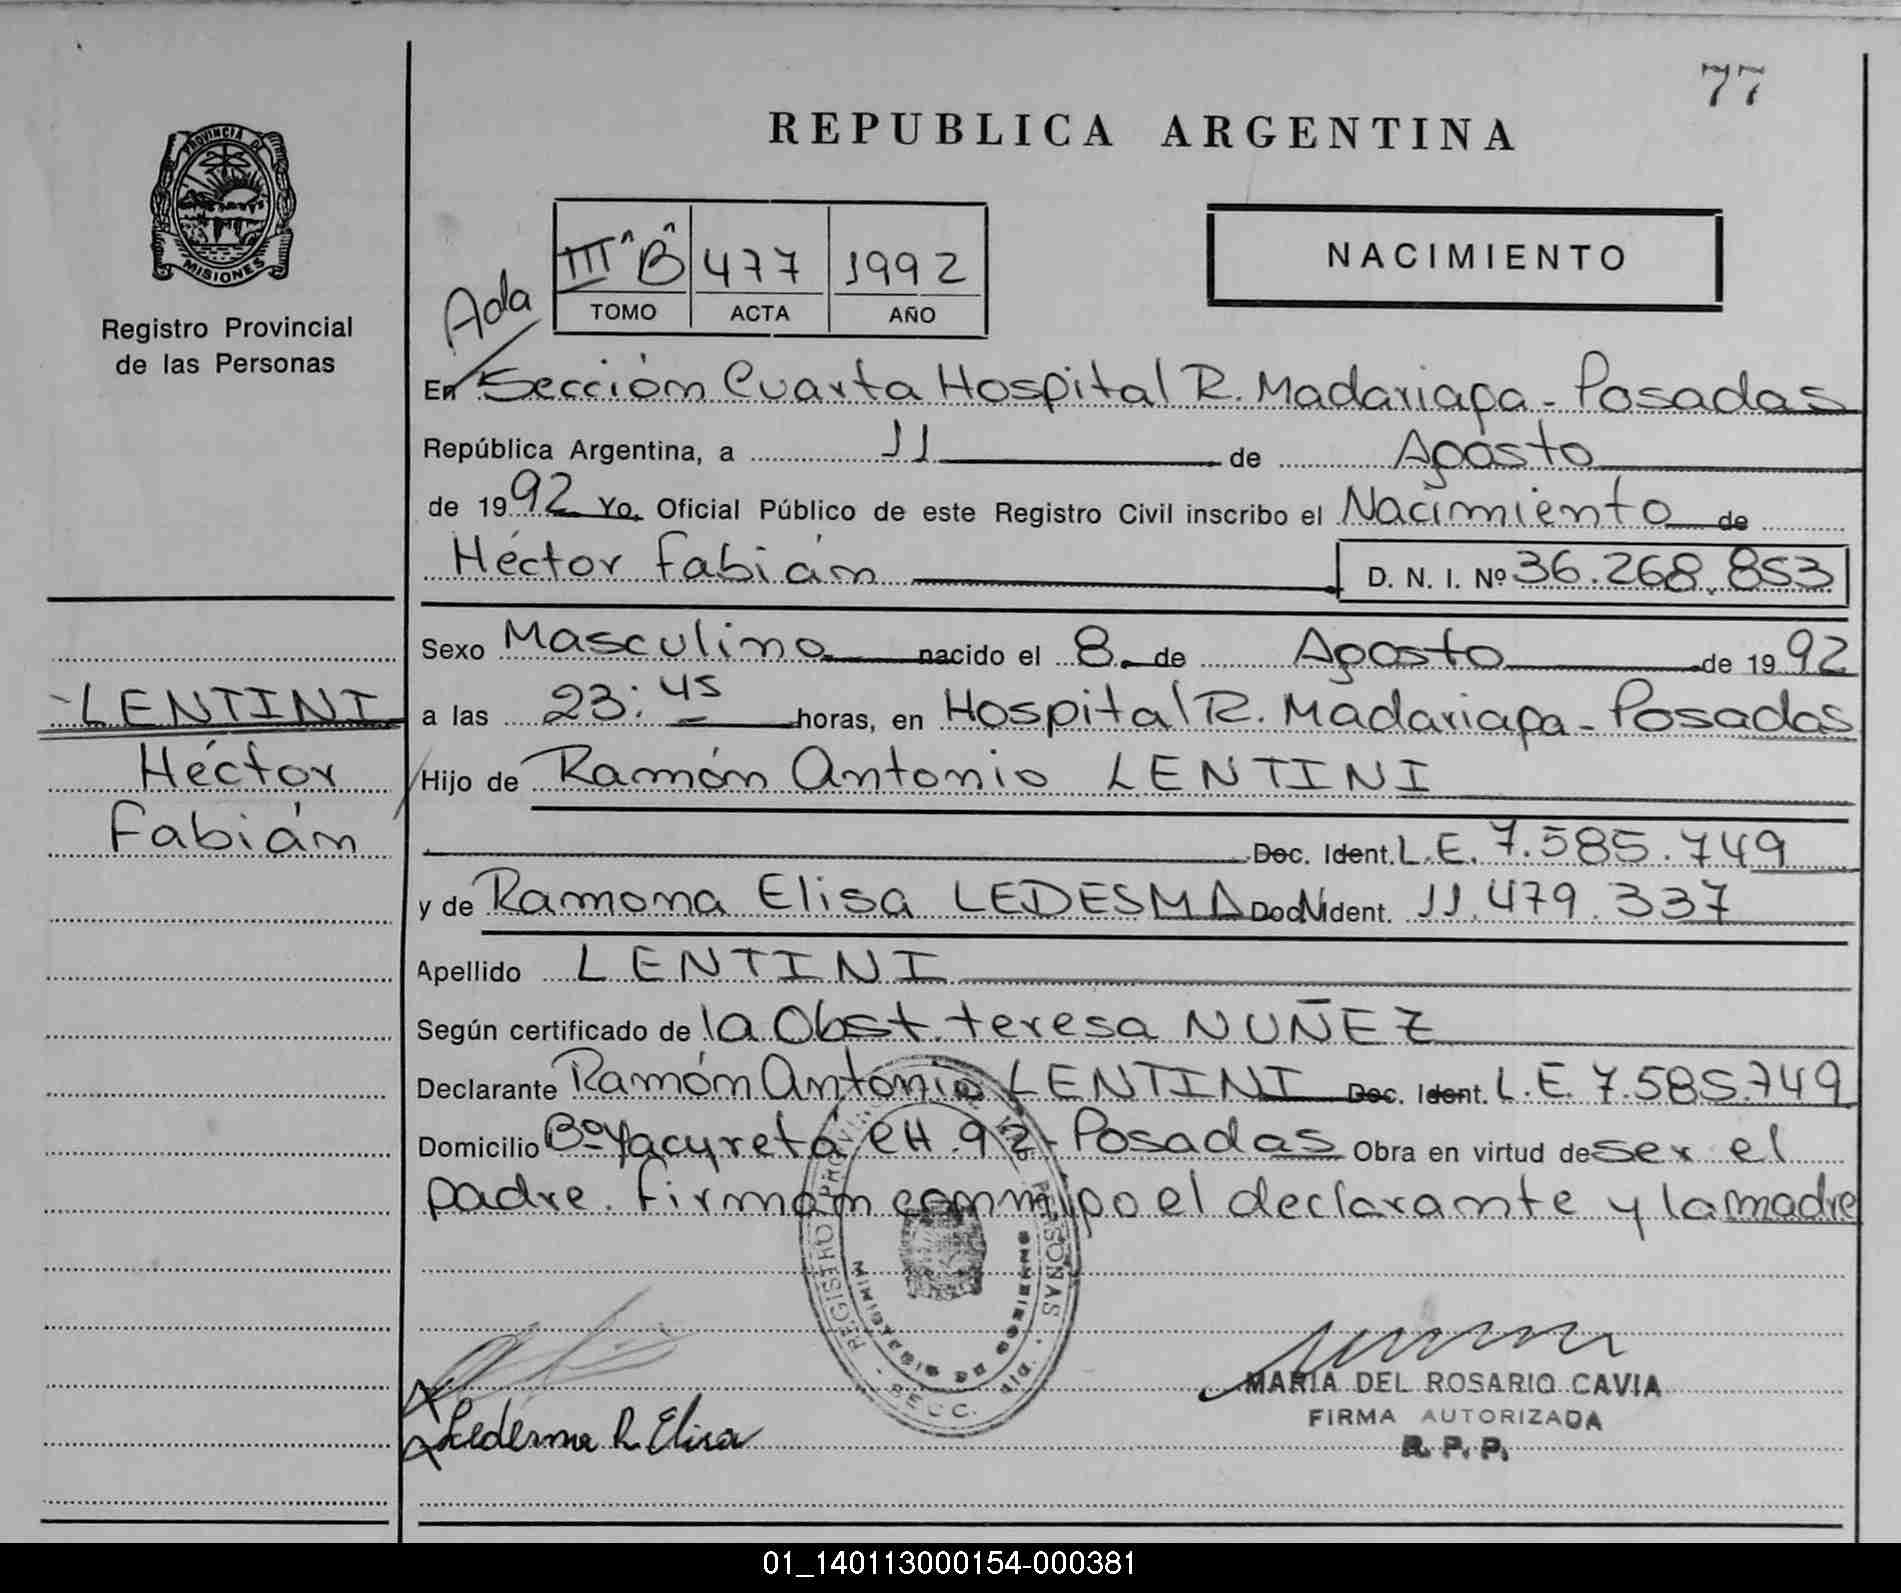 77
REPUBLICA ARGENTINA
PROVINCIA DE
MISIONES
Registro Provincial
de las Personas
III^ B^ 477 1992
TOMO ACTA AÑO
NACIMIENTO
Ada
En Sección Cuarta Hospital R. Madariaga - Posadas
República Argentina, a 11 de Agosto
de 1992 Yo, Oficial Público de este Registro Civil inscribo el Nacimiento de
Héctor Fabián D. N. I. Nº 36.268.853
Sexo Masculino nacido el 8 de Agosto de 1992
a las 23:45 horas, en Hospital R. Madariaga - Posadas
Hijo de Ramón Antonio LENTINI
Doc. Ident. L.E. 7.585.749
y de Ramona Elisa LEDESMA Doc. Ident. 11.479.337
Apellido LENTINI
Según certificado de la Obst. teresa NUÑEZ
Declarante Ramón Antonio LENTINI Doc. Ident. L.E. 7.585.749
Domicilio Bº Yacyretá CH. 92 - Posadas Obra en virtud de ser el
padre. Firman conmigo el declarante y la madre
-LENTINI
Héctor
Fabián
REGISTRO PROVINCIAL DE LAS PERSONAS
MISIONES
SECC.
Ledesma R. Elisa
MARIA DEL ROSARIO CAVIA
FIRMA AUTORIZADA
R. P. P.
01_140113000154-000381